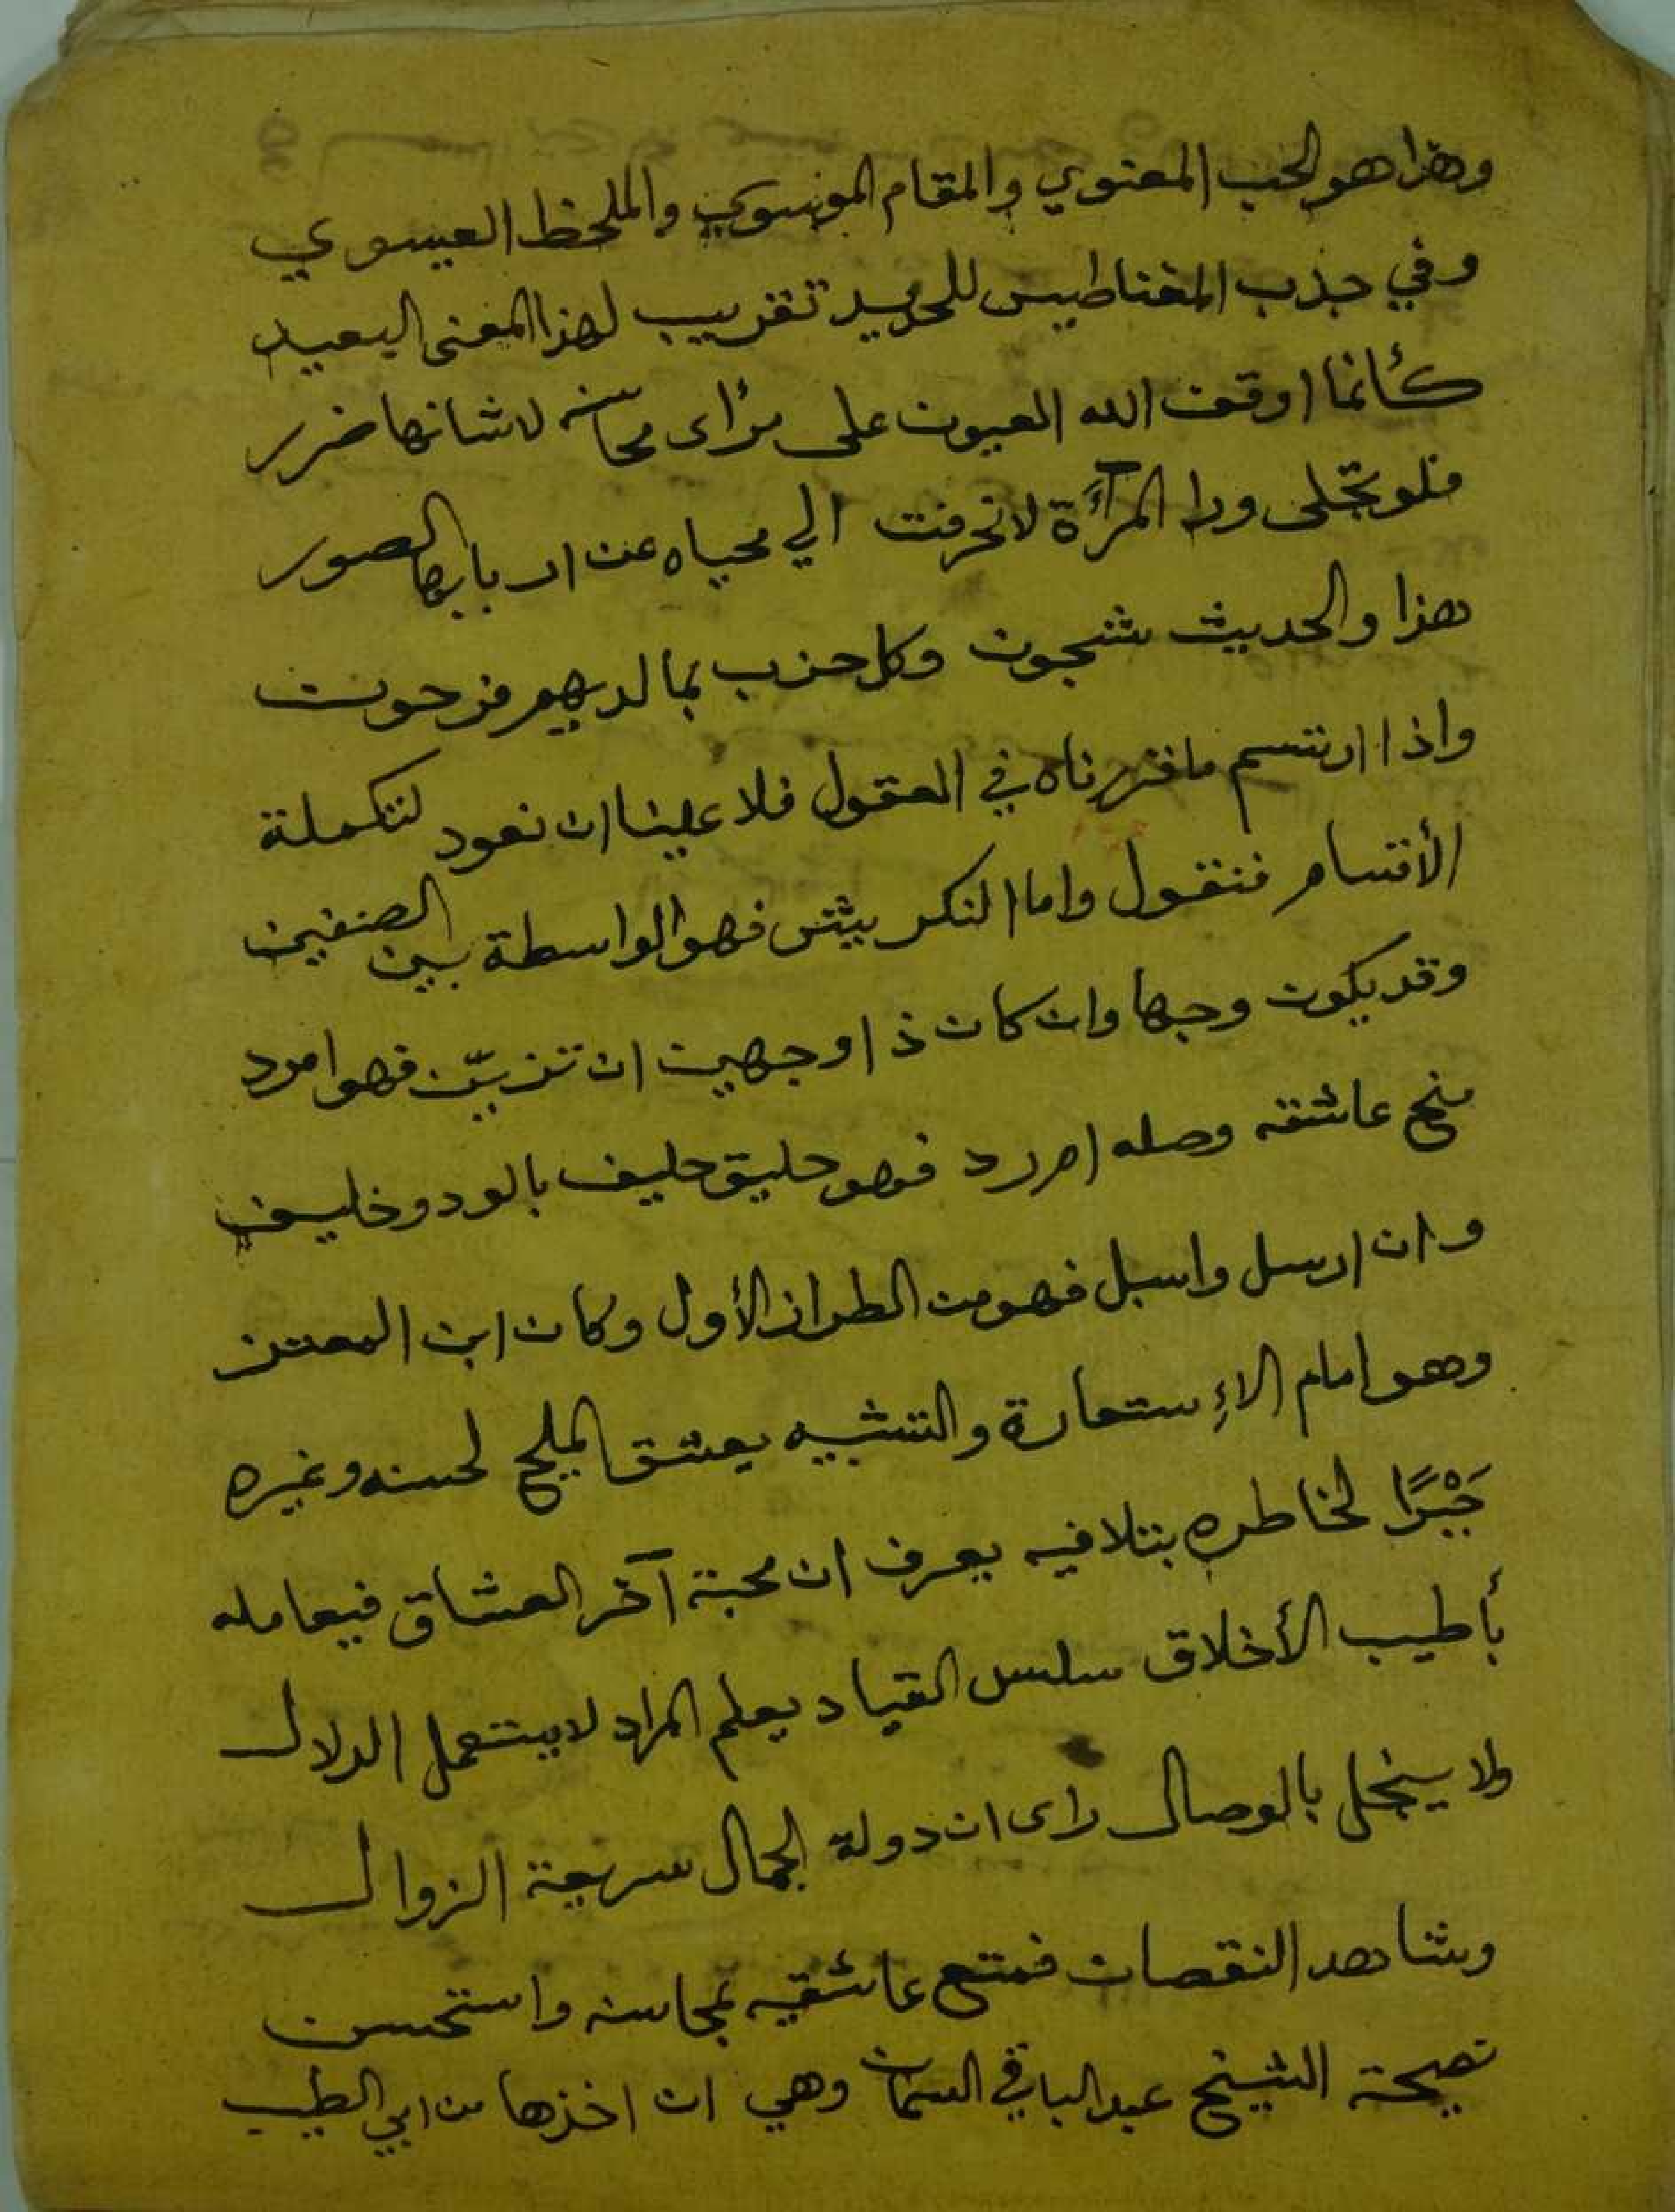 وهذا هو الحب المعنوي والمقام الموسوي والملحظ العيسوي
وفي جذب المغناطيس للحديد تقريب لهذا المعنى البعيد
كأنما اوقف الله العيون على مرأى محاسنه لا شانها ضرر
فلو تجلى ورا المرآة لانحرفت الي محياه عن اربابها الصور
هذا والحديث شجون وكل حزب بما لديهم فرحون
واذا ارتسم ما قررناه في العقول فلا علينا ان نعود لتكملة
الأقسام فنقول واما النكريش فهو الواسطة بين الصنفين
وقد يكون وجها وان كان ذا وجهين ان تزين فهو امرد
منح عاشقه وصله امرد فهو حليق حليف بالود وخليف
وان ارسل واسبل فهو من الطراز الأول وكان ابن المعتز
وهو امام الإستعارة والتشبيه يعشق المليح لحسنه وغيره
جَبْرًا لخاطره بتلافيه يعرف ان محبة آخر العشاق فيعامله
بأطيب الأخلاق سلس القياد يعلم المراد لا يستعمل الدلال
ولا يبخل بالوصال راى ان دولة الجمال سريعة الزوال
وشاهد النقصان فمتع عاشقيه بمحاسنه واستحسن
نصيحة الشيخ عبد الباقي السمان وهي ان اخذها من ابي الطيب